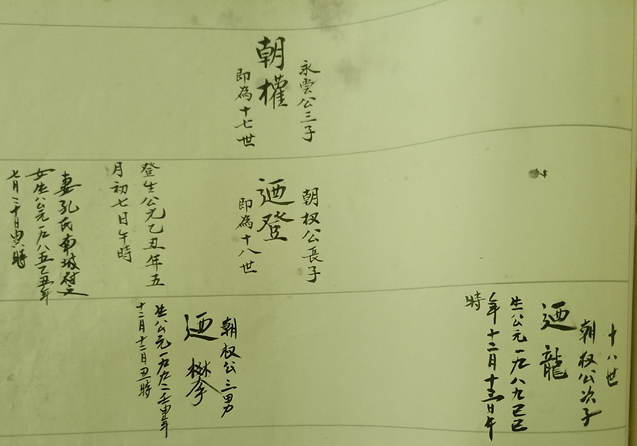 永雲公三子
朝權
即為十七世
朝权公長子
迺登
即為十八世
登生公元乙丑年五
月初七日午時
妻孔氏南坡村之
女生公元一九八五乙丑年
七月二十日時
十八世
朝权公次子
迺龍
生公元一九八九己巳
年十二月十三日午
時
朝权公三男
迺攀
生公元一九九二壬申年
十二月十二日丑時